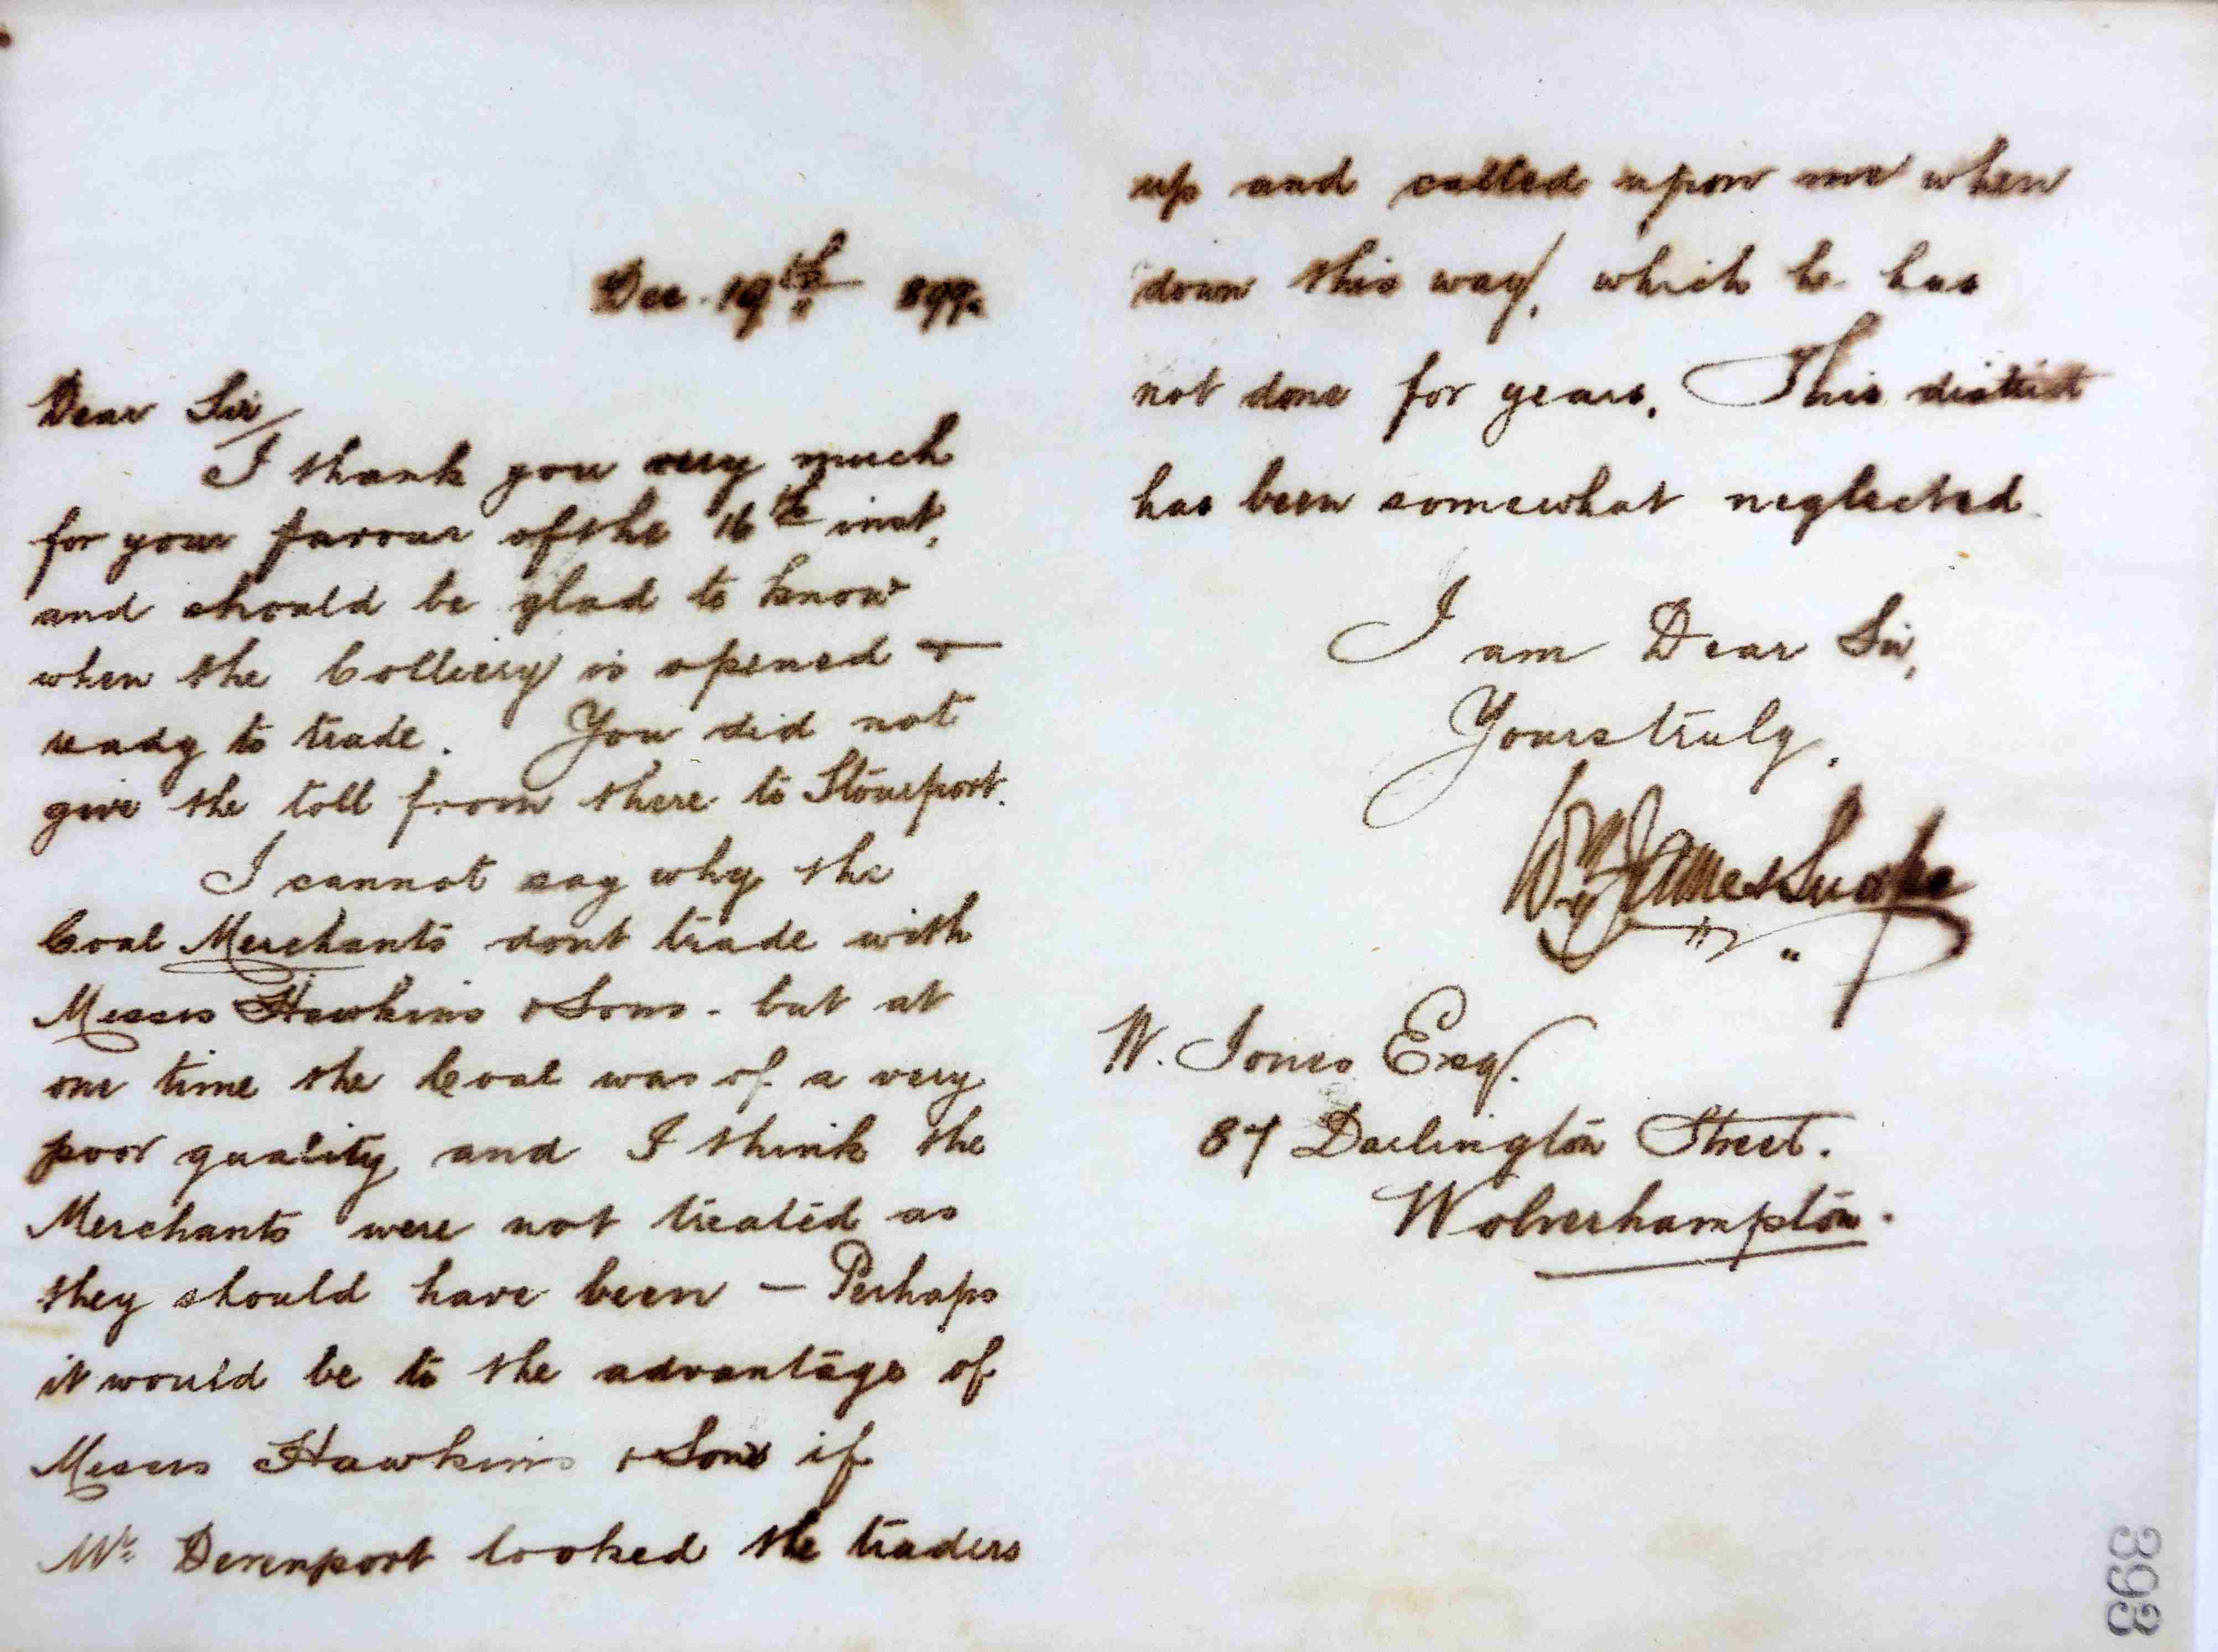 Dec. 19th 899.
Dear Sir/
I thank you very much
for your favour of the 16th inst,
and should be glad to know
when the Colliery is opened &
ready to trade. You did not
give the toll from there to Stourport.
I cannot say why the
Coal Merchants dont trade with
Messrs Hawkins & Sons - but at
one time the Coal was of a very
poor quality and I think the
Merchants were not treated as
they should have been - Perhaps
it would be to the advantage of
Messrs Hawkins & Sons if
Mr. Devenport looked the traders
up and called upon me when
down this way, which he has
not done for years. This district
has been somewhat neglected
I am Dear Sir,
Yours truly,
Wm James
W. Jones Esq.
87 Darlington Street.
Wolverhampton.
393